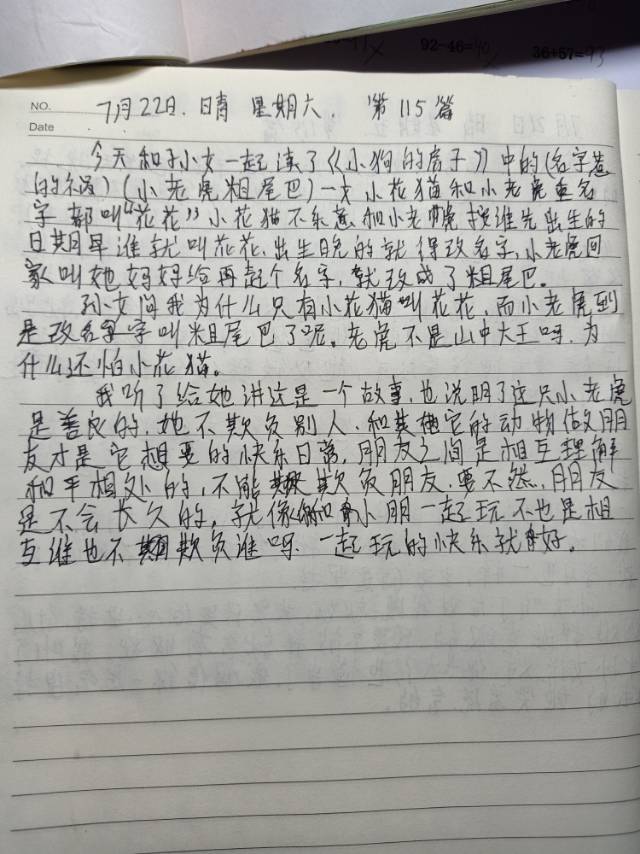 92-46=40
36+57=93
NO.
Date
7月22日. 晴 星期六. 第115篇
今天和孙女一起读了《小狗的房子》中的(名字惹
的祸)(小老虎粗尾巴)一文 小花猫和小老虎重名
字 都叫“花花”小花猫不乐意和小老虎按谁先出生的
日期早谁就叫花花. 出生晚的就得改名字, 小老虎回
家叫她妈妈给再起个名字, 就改成了粗尾巴.
孙女问我为什么只有小花猫叫花花, 而小老虎到
是改名字叫粗尾巴了呢. 老虎不是山中大王吗. 为
什么还怕小花猫.
我听了给她讲这是一个故事. 也说明了这只小老虎
是善良的. 她不欺负别人. 和其他它的动物做朋
友才是它想要的快乐日常, 朋友之间是相互理解
和平相处的, 不能欺负朋友, 要不然, 朋友
是不会长久的. 就像你和小朋一起玩不也是相
互谁也不欺负谁吗 一起玩的快乐就好.